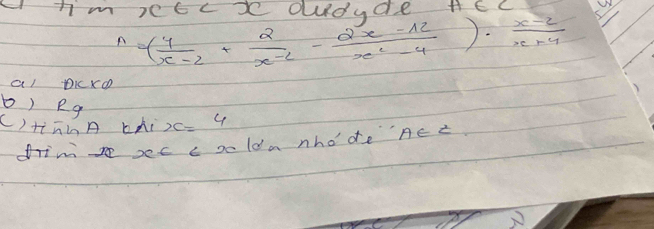 tìm x∈Z x để A∈Z
A = (4/(x-2) + 2/(x-2) - (2x-12)/(x²-4)) . (x-2)/(x+4)
a) ĐKXĐ
b) Rg
c) tính A khi x = 4
d tìm x∈Z x lớn nhỏ để A∈Z.